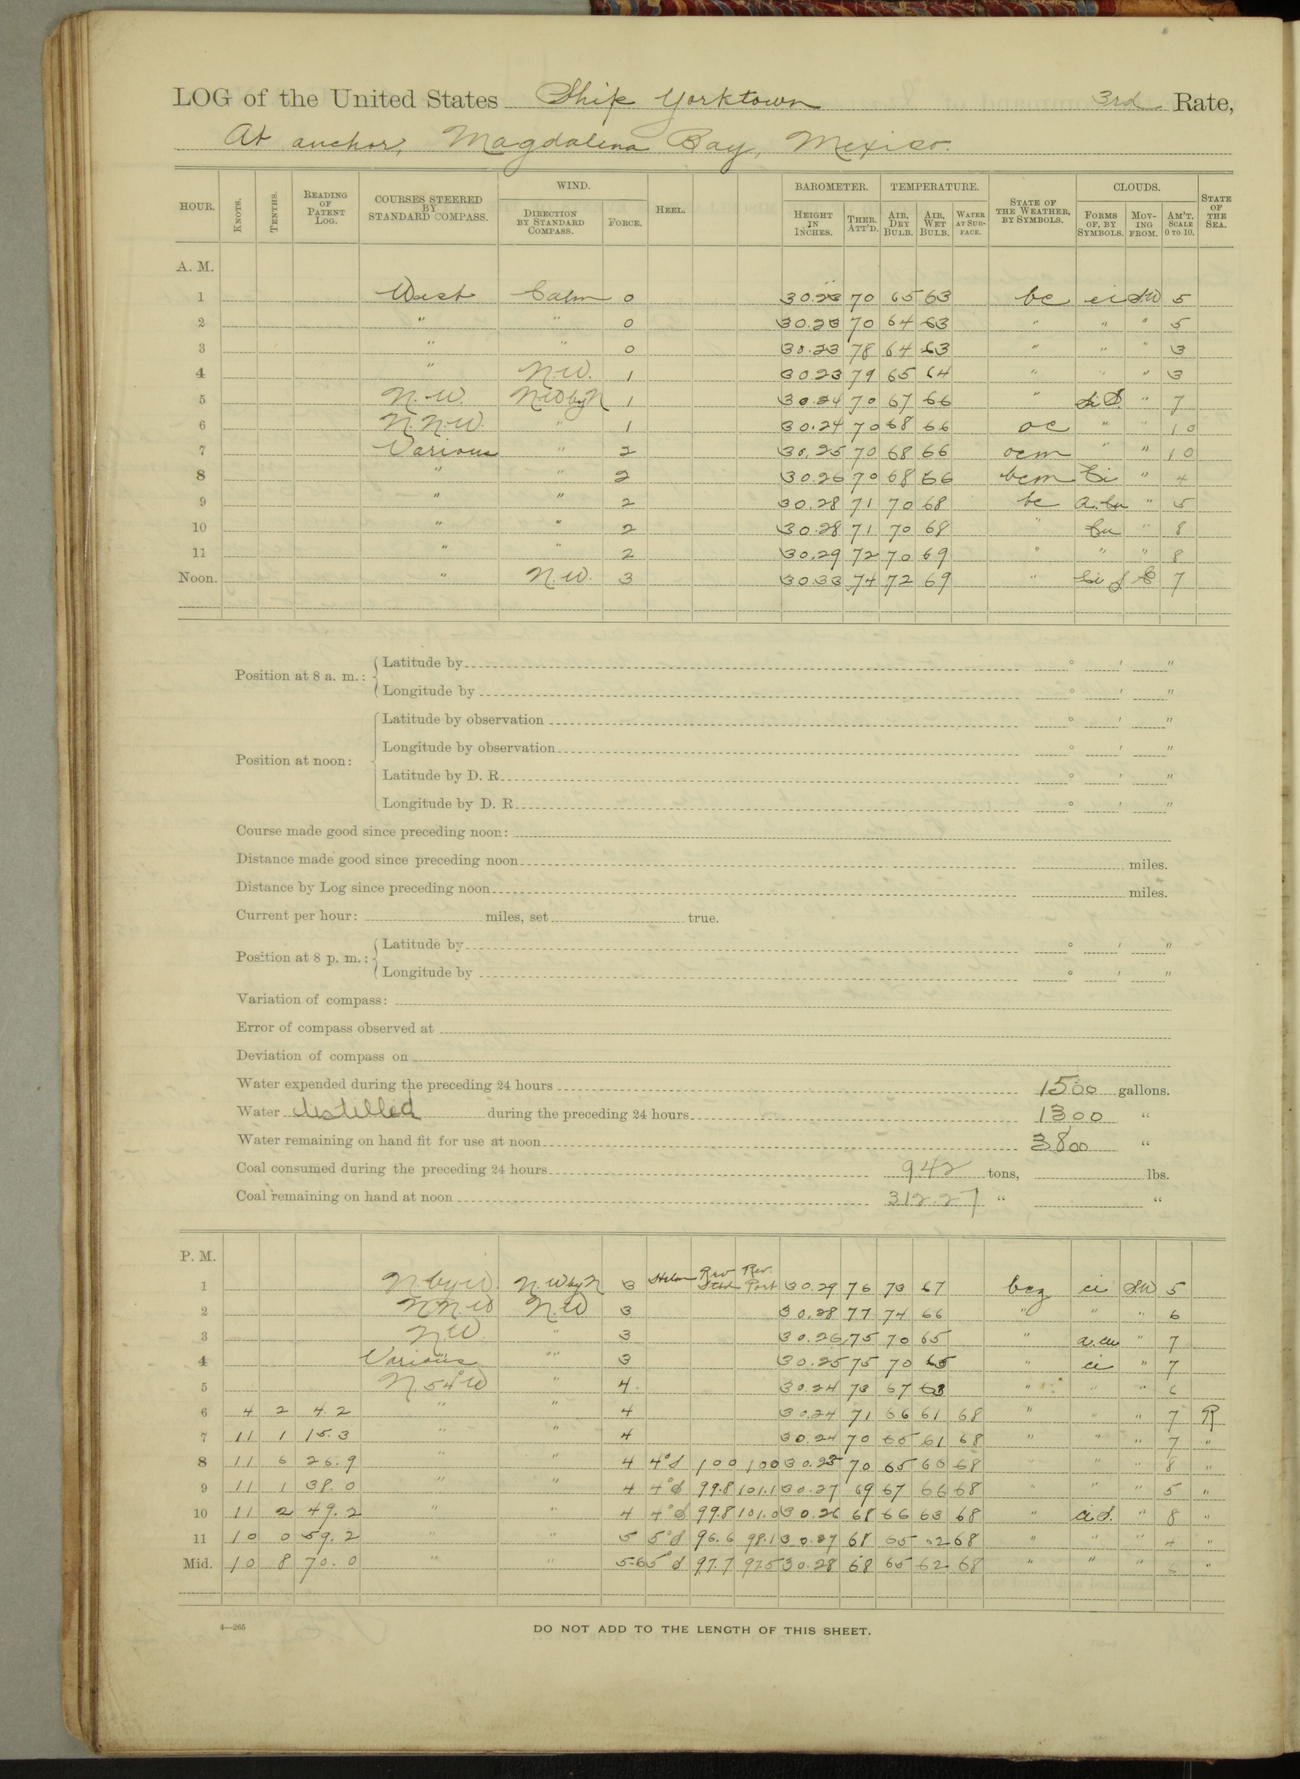 LOG of the United States Ship Yorktown 3rd Rate,
At anchor, Magdalena Bay, Mexico.
HOUR. KNOTS. TENTHS. READING OF PATENT LOG. COURSES STEERED BY STANDARD COMPASS. WIND. DIRECTION BY STANDARD COMPASS. FORCE. HEEL. BAROMETER. HEIGHT IN INCHES. THER. ATT'D. TEMPERATURE. AIR, DRY BULB. AIR, WET BULB. WATER AT SURFACE. STATE OF THE WEATHER, BY SYMBOLS. CLOUDS. FORMS OF, BY SYMBOLS. MOVING FROM. AM'T. SCALE 0 TO 10. STATE OF THE SEA.
A. M.
1 West Calm 0 30.23 70 65 63 bc ci SW 5
2 " " 0 30.23 70 64 63 " " " 5
3 " " 0 30.23 78 64 63 " " " 3
4 " N.W. 1 30.23 79 65 64 " " " 3
5 N.W. NW by N 1 30.24 70 67 66 " " 7
6 N.N.W. " 1 30.24 70 68 66 oc " " 10
7 Various " 2 30.25 70 68 66 ocm " " 10
8 " " 2 30.26 70 68 66 bcm Ci " 4
9 " " 2 30.28 71 70 68 bc a.cu " 5
10 " " 2 30.28 71 70 68 " Cu " 8
11 " " 2 30.29 72 70 69 " " " 8
Noon. " N.W. 3 30.33 74 72 69 " 7
Position at 8 a. m.: Latitude by ° ' "
Longitude by ° ' "
Position at noon: Latitude by observation ° ' "
Longitude by observation ° ' "
Latitude by D. R. ° ' "
Longitude by D. R. ° ' "
Course made good since preceding noon:
Distance made good since preceding noon miles.
Distance by Log since preceding noon miles.
Current per hour: miles, set true.
Position at 8 p. m.: Latitude by ° ' "
Longitude by ° ' "
Variation of compass:
Error of compass observed at
Deviation of compass on
Water expended during the preceding 24 hours 1500 gallons.
Water distilled during the preceding 24 hours 1300 "
Water remaining on hand fit for use at noon 3800 "
Coal consumed during the preceding 24 hours 9.42 tons, lbs.
Coal remaining on hand at noon 312.27 " "
P. M.
1 N. by W. N. W by N 3 Rev Stbd Rev. Port 30.29 76 73 67 bcz ci SW 5
2 N.N.W N.W 3 30.28 77 74 66 " " " 6
3 N.W. " 3 30.26 75 70 65 " a.cu " 7
4 Various " 3 30.25 75 70 65 " ci " 7
5 N 54° W " 4 30.24 73 67 63 " " " 6
6 4 2 4.2 " " 4 30.24 71 66 61 68 " " " 7 R
7 11 1 15.3 " " 4 30.24 70 65 61 68 " " " 7 "
8 11 6 26.9 " " 4 4°s 100 100 30.25 70 65 60 68 " " " 8 "
9 11 1 38.0 " " 4 4°s 99.8 101.1 30.27 69 67 66 68 " " " 5 "
10 11 2 49.2 " " 4 4°s 99.8 101.0 30.26 68 66 63 68 " ci.s. " 8 "
11 10 0 59.2 " " 5 5°s 96.6 98.1 30.27 68 65 62 68 " " " 4 "
Mid. 10 8 70.0 " " 5-6 5°s 97.7 97.5 30.28 68 65 62 68 " " " 6 "
4—265
DO NOT ADD TO THE LENGTH OF THIS SHEET.